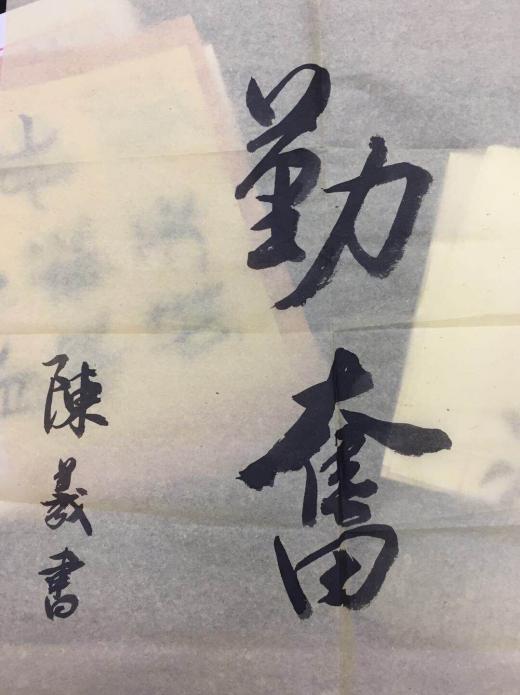 勤奮
陳義書